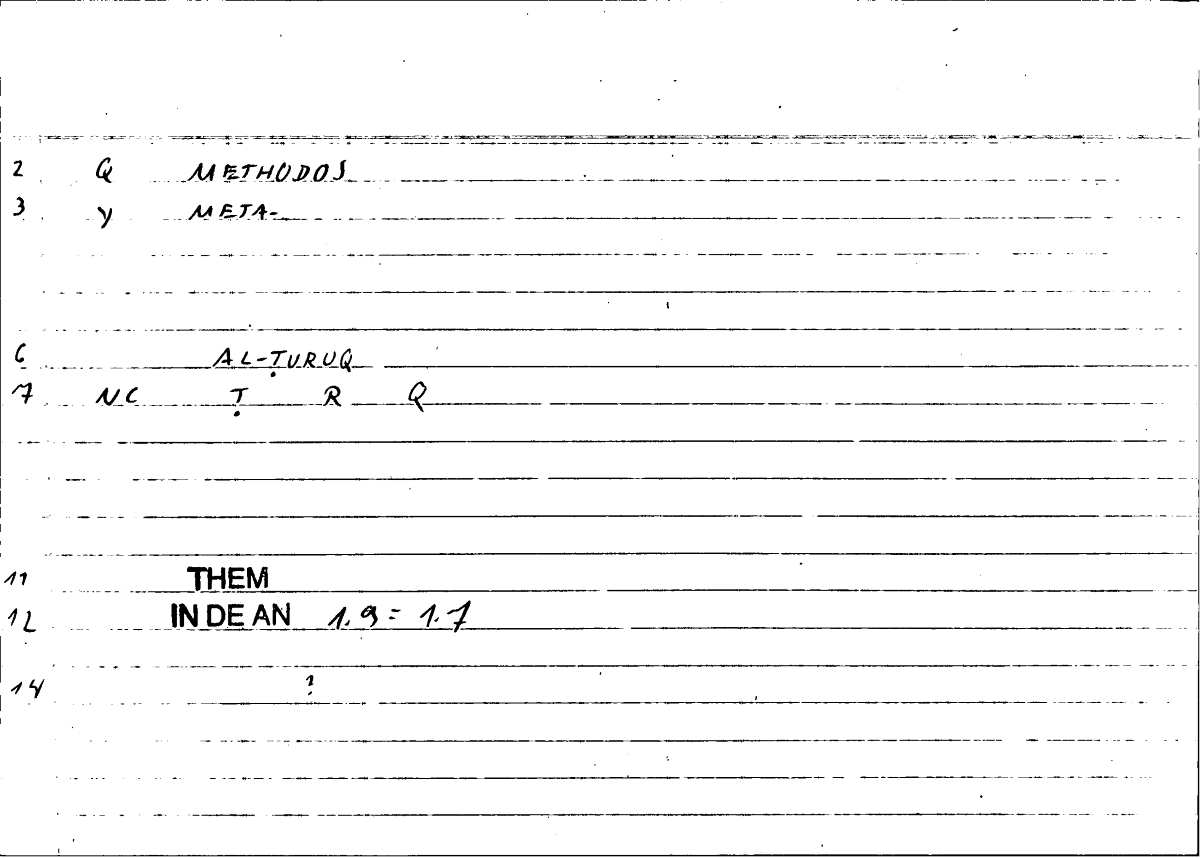 2 Q METHODOS
3 Y META-
6 AL-ṬURUQ
7 NC Ṭ R Q
11 THEM
12 IN DE AN 1.9 = 1.7
14 ?